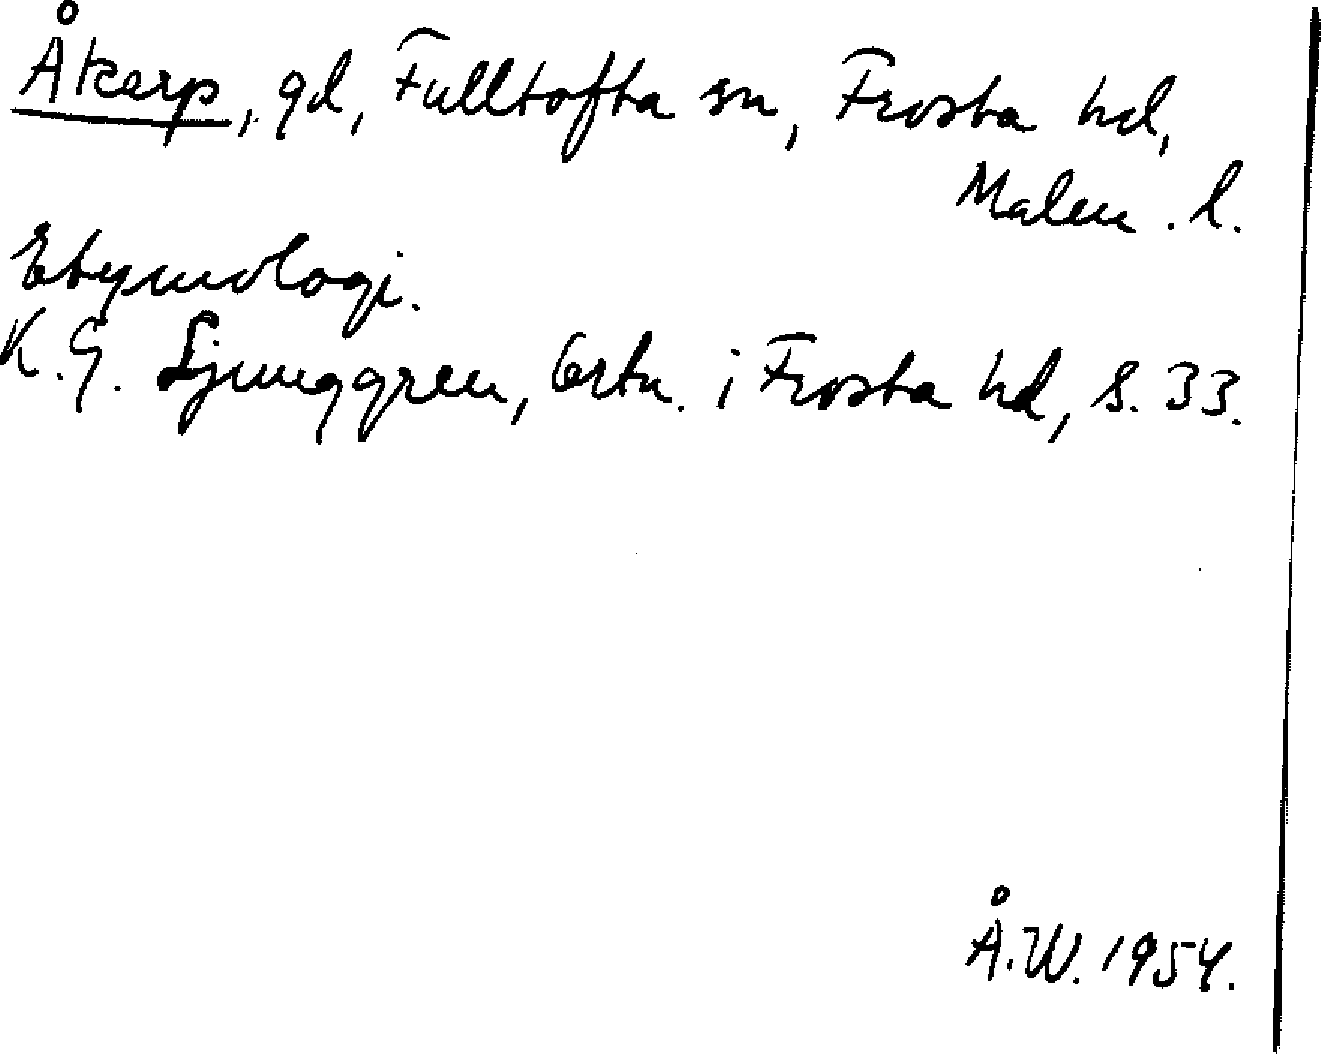 Åkarp, gd, Fulltofta sn, Frosta hd,
Malm. l.
Etymologi.
K. G. Ljunggren, Ortn. i Frosta hd, s. 33.
Å. W. 1954.